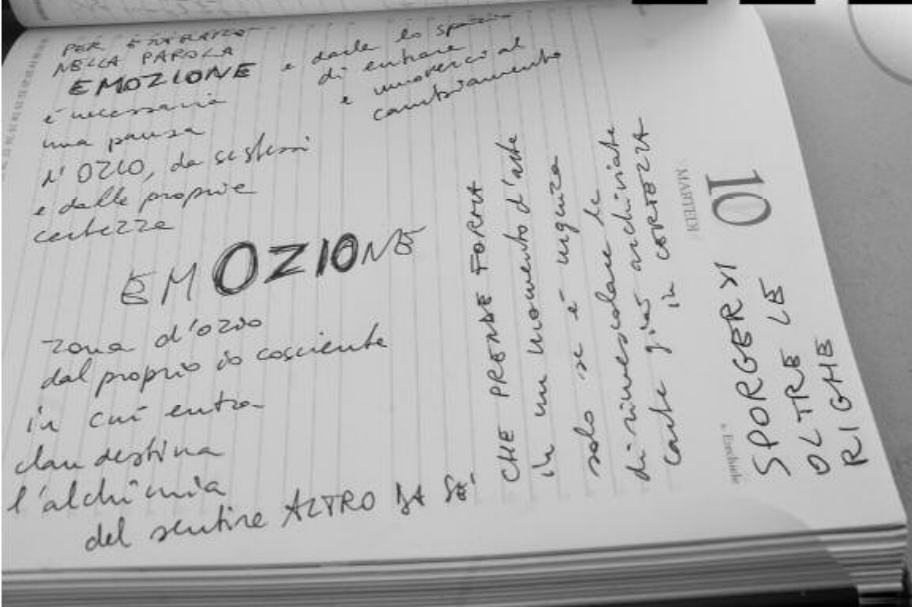 PER ENTRARE
NELLA PAROLA
EMOZIONE
è necessaria
una pausa
d'OZIO, da se stessi
e dalle proprie
certezze
e darle lo spazio
di entrare
e muoverci al
cambiamento
EMOZIONE
zona d'ozio
dal proprio io cosciente
in cui entra
clandestina
l'alchimia
del sentire ALTRO DA SE'
CHE PRENDE FORMA
in un momento d'arte
solo se è
di rimescolare le
carte già archiviate
in CORTEZZA
MARTEDÌ
10
SPORGERSI
OLTRE LE
RIGHE